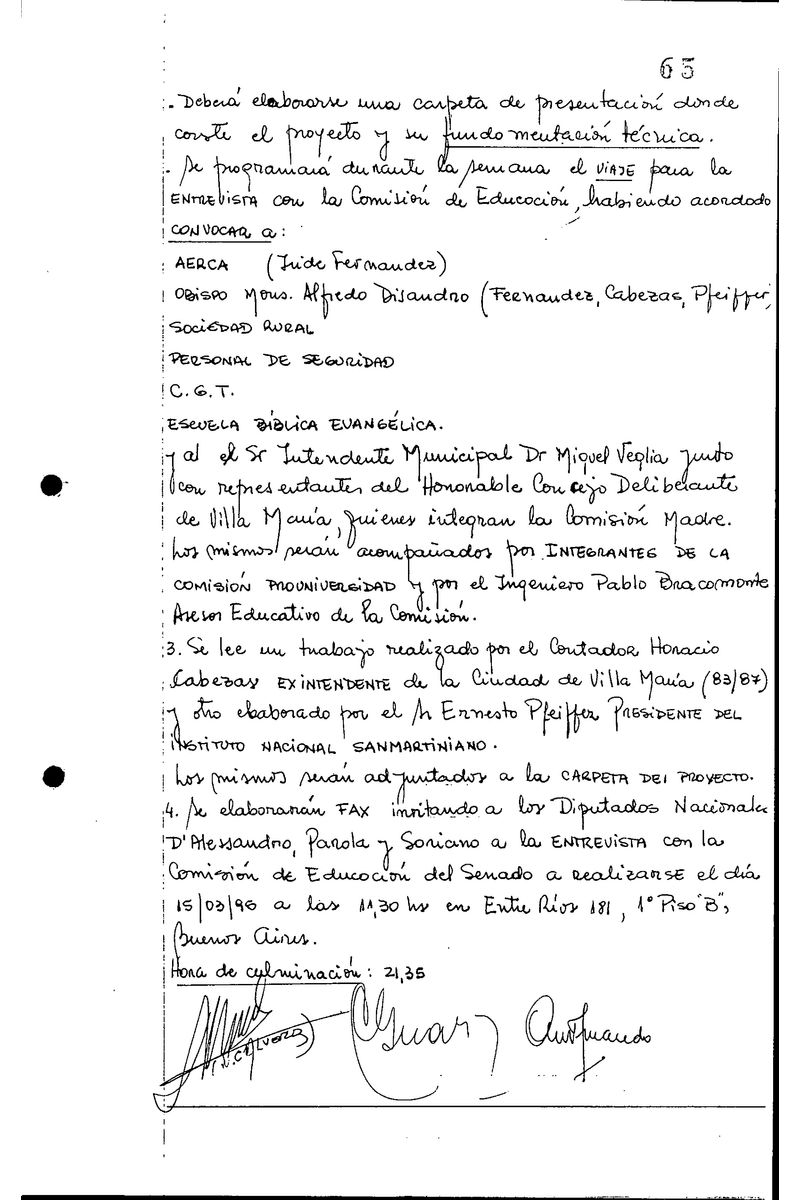 65
. Deberá elaborarse una carpeta de presentación donde
conste el proyecto y su fundamentación técnica.
. Se programará durante la semana el VIAJE para la
ENTREVISTA con la Comisión de Educación, habiendo acordado
CONVOCAR a:
AERCA (Iride Fernandez)
OBISPO Mons. Alfredo Disandro (Fernandez, Cabezas, Pfeiffer,
SOCIEDAD RURAL
PERSONAL DE SEGURIDAD
C.G.T.
ESCUELA BÍBLICA EVANGÉLICA.
y al el Sr Intendente Municipal Dr Miguel Veglia junto
con representantes del Honorable Concejo Deliberante
de Villa María, quienes integran la Comisión Madre.
Los mismos serán acompañados por INTEGRANTES DE LA
COMISIÓN PROUNIVERSIDAD y por el Ingeniero Pablo Bracamonte
Asesor Educativo de la Comisión.
3. Se lee un trabajo realizado por el Contador Horacio
Cabezas EX INTENDENTE de la Ciudad de Villa María (83/87)
y otro elaborado por el Sr Ernesto Pfeiffer PRESIDENTE DEL
INSTITUTO NACIONAL SANMARTINIANO.
Los mismos serán adjuntados a la CARPETA DEL PROYECTO.
4. Se elaborarán FAX invitando a los Diputados Nacionales
D'Alessandro, Parola y Soriano a la ENTREVISTA con la
Comisión de Educación del Senado a realizarse el día
15/03/95 a las 11,30 hs en Entre Ríos 181, 1° Piso "B",
Buenos Aires.
Hora de culminación: 21,35